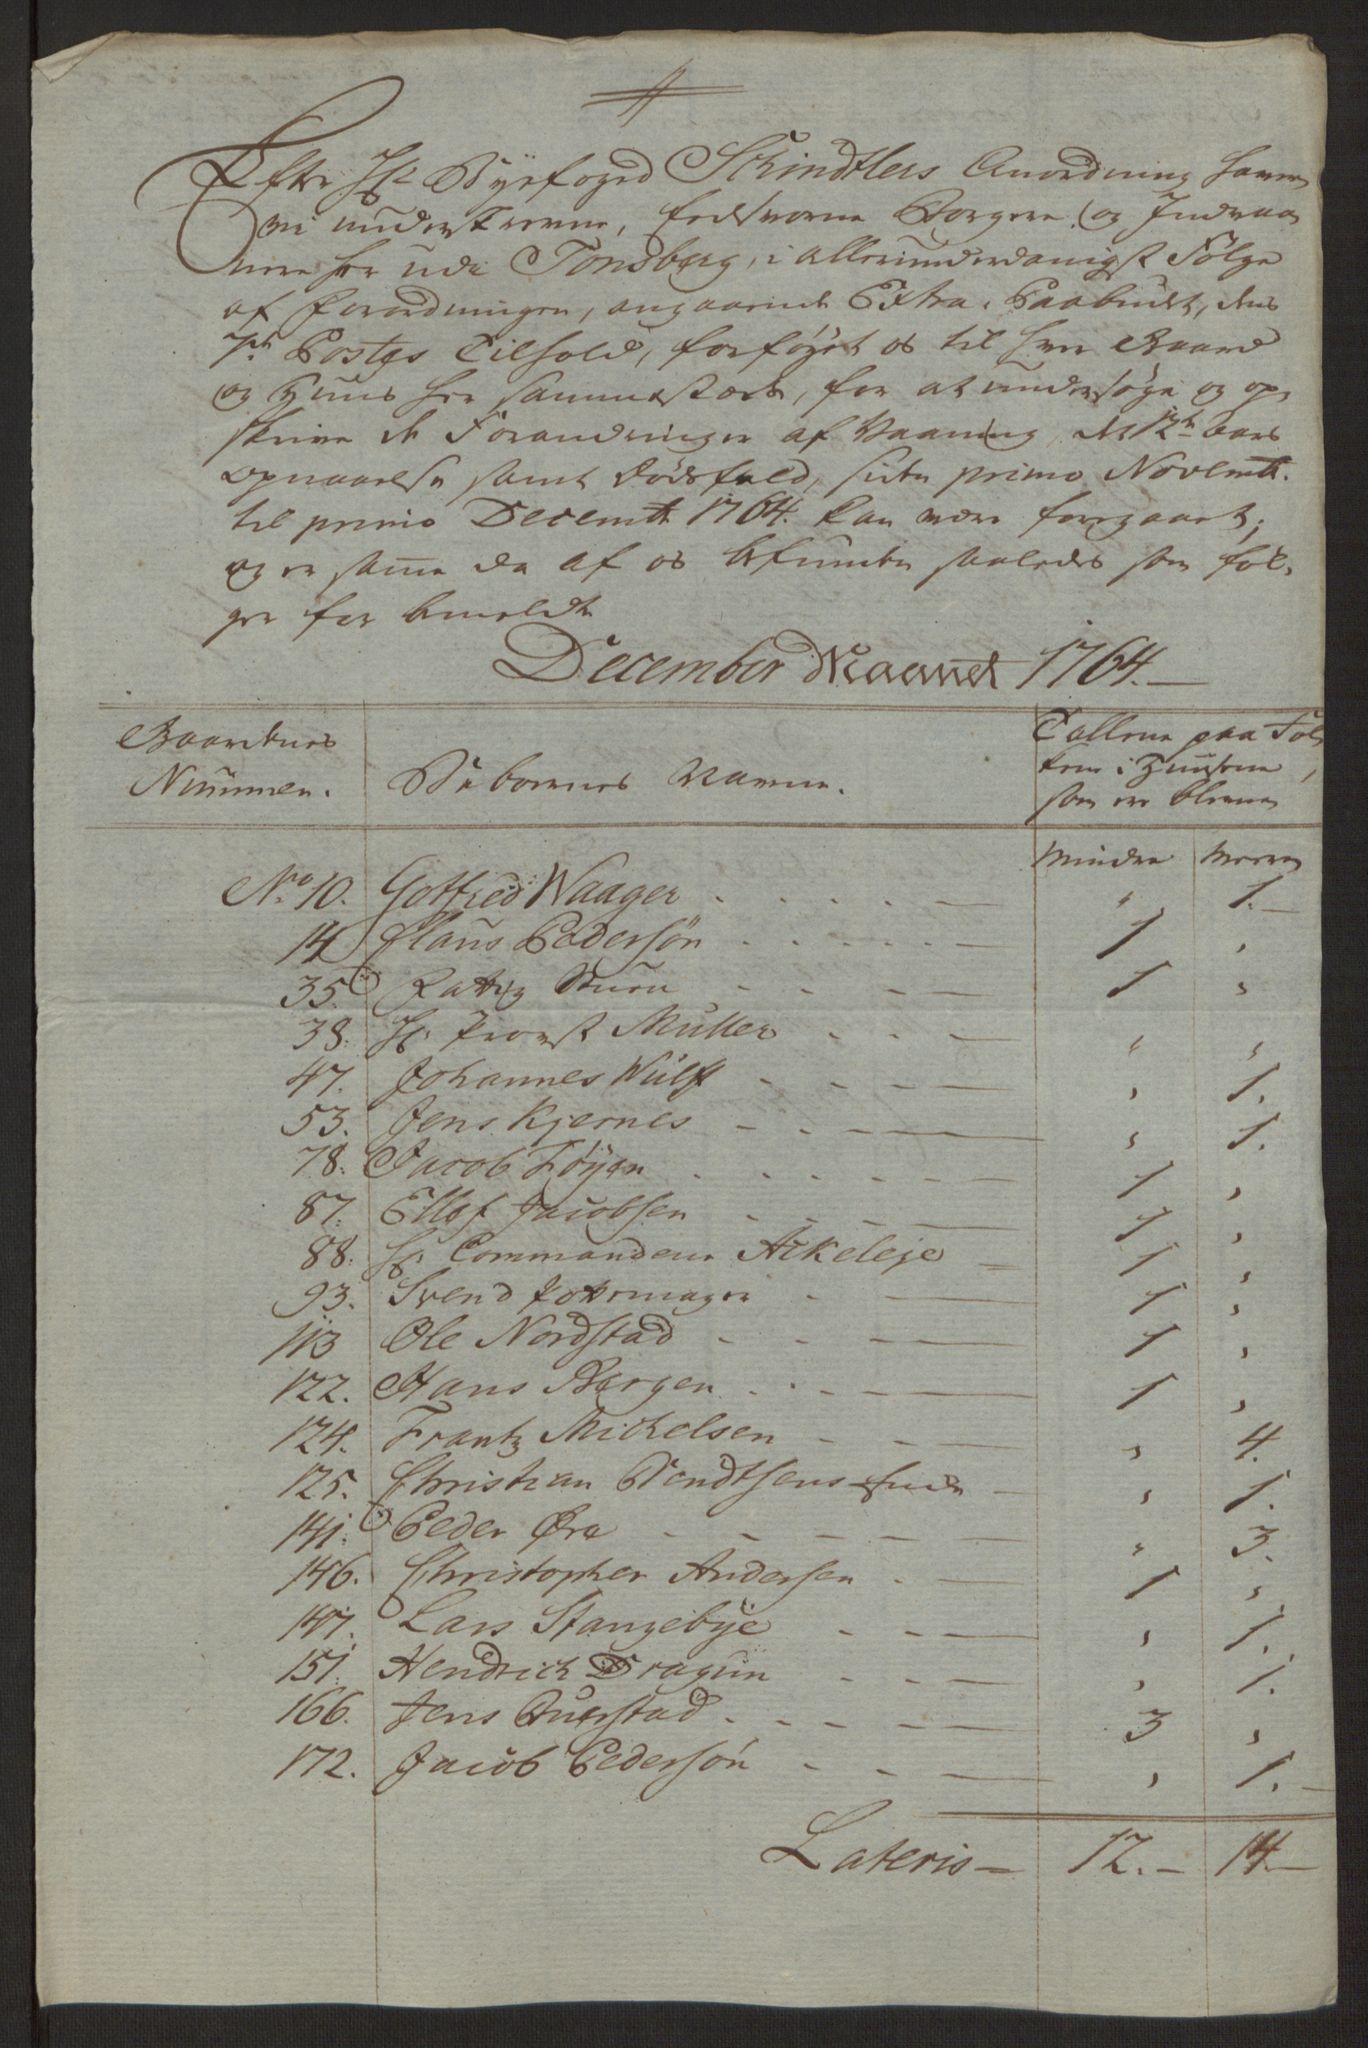 Efter Hr Byefoged Skindtlers Anordning haver
vi understrevne, Eedsvorne Borgere og Indvaa
nere her udi Tonsberg, i allerunderdanigst Følge
af forordningen, angaaende Extra-Paabudet, dens
7de Postes Tilhold, forføyet os til hver Gaard
og Huus her sammesteds, for at undersøge og op,
skrive de Forandringer af Vaaning, det 12te aars
opnaaelse samt dødsfald, siden primo Novembr.
til primo Decembr 1764. kan være foregaaet;
og er saṁe da af os befunden saaledes som føl,
ger her bemeldt
December Maanet 1764.
Gaardenes Nummer. Beboernes Navne. Tallene paa Fol
kene i Huusene,
som ere blevne
Mindre Meere
No. 10. Gotfred Waager " 1.
14 Claus Pedersön 1 "
35. Huru 1 "
38. Hr. Provst Müller " "
47. Johannes Wülff " 1.
53. Jens Kjernes " 1.
78. Jacob Föÿen 1 "
87. Ellef Jacobsen 1 "
88. Hr. Commandeur Akeleje 1 "
93. Svend Pottemager 1 "
113 Ole Nordstad 1 "
122. Hans Bergen 1 "
124. Frantz Michelsen " 4.
125. Christian Bendtsens Enke " 1.
141. Peder Øra " 3.
146. Christopher Andersen 1 "
147. Lars Stangebÿe " 1.
151. Hendrich Dragun " 1.
166. Jens Auerstad 3 "
172. Jacob Pedersön " 1.
Lateris 12. 14.